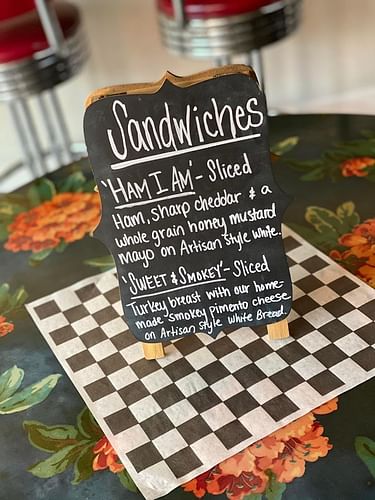 Sandwiches
'HAM I AM' - Sliced
Ham, sharp cheddar & a
whole grain honey mustard
mayo on Artisan style white.
'SWEET & SMOKEY' - Sliced
Turkey breast with our home-
made smokey pimento cheese
on Artisan style white Bread.